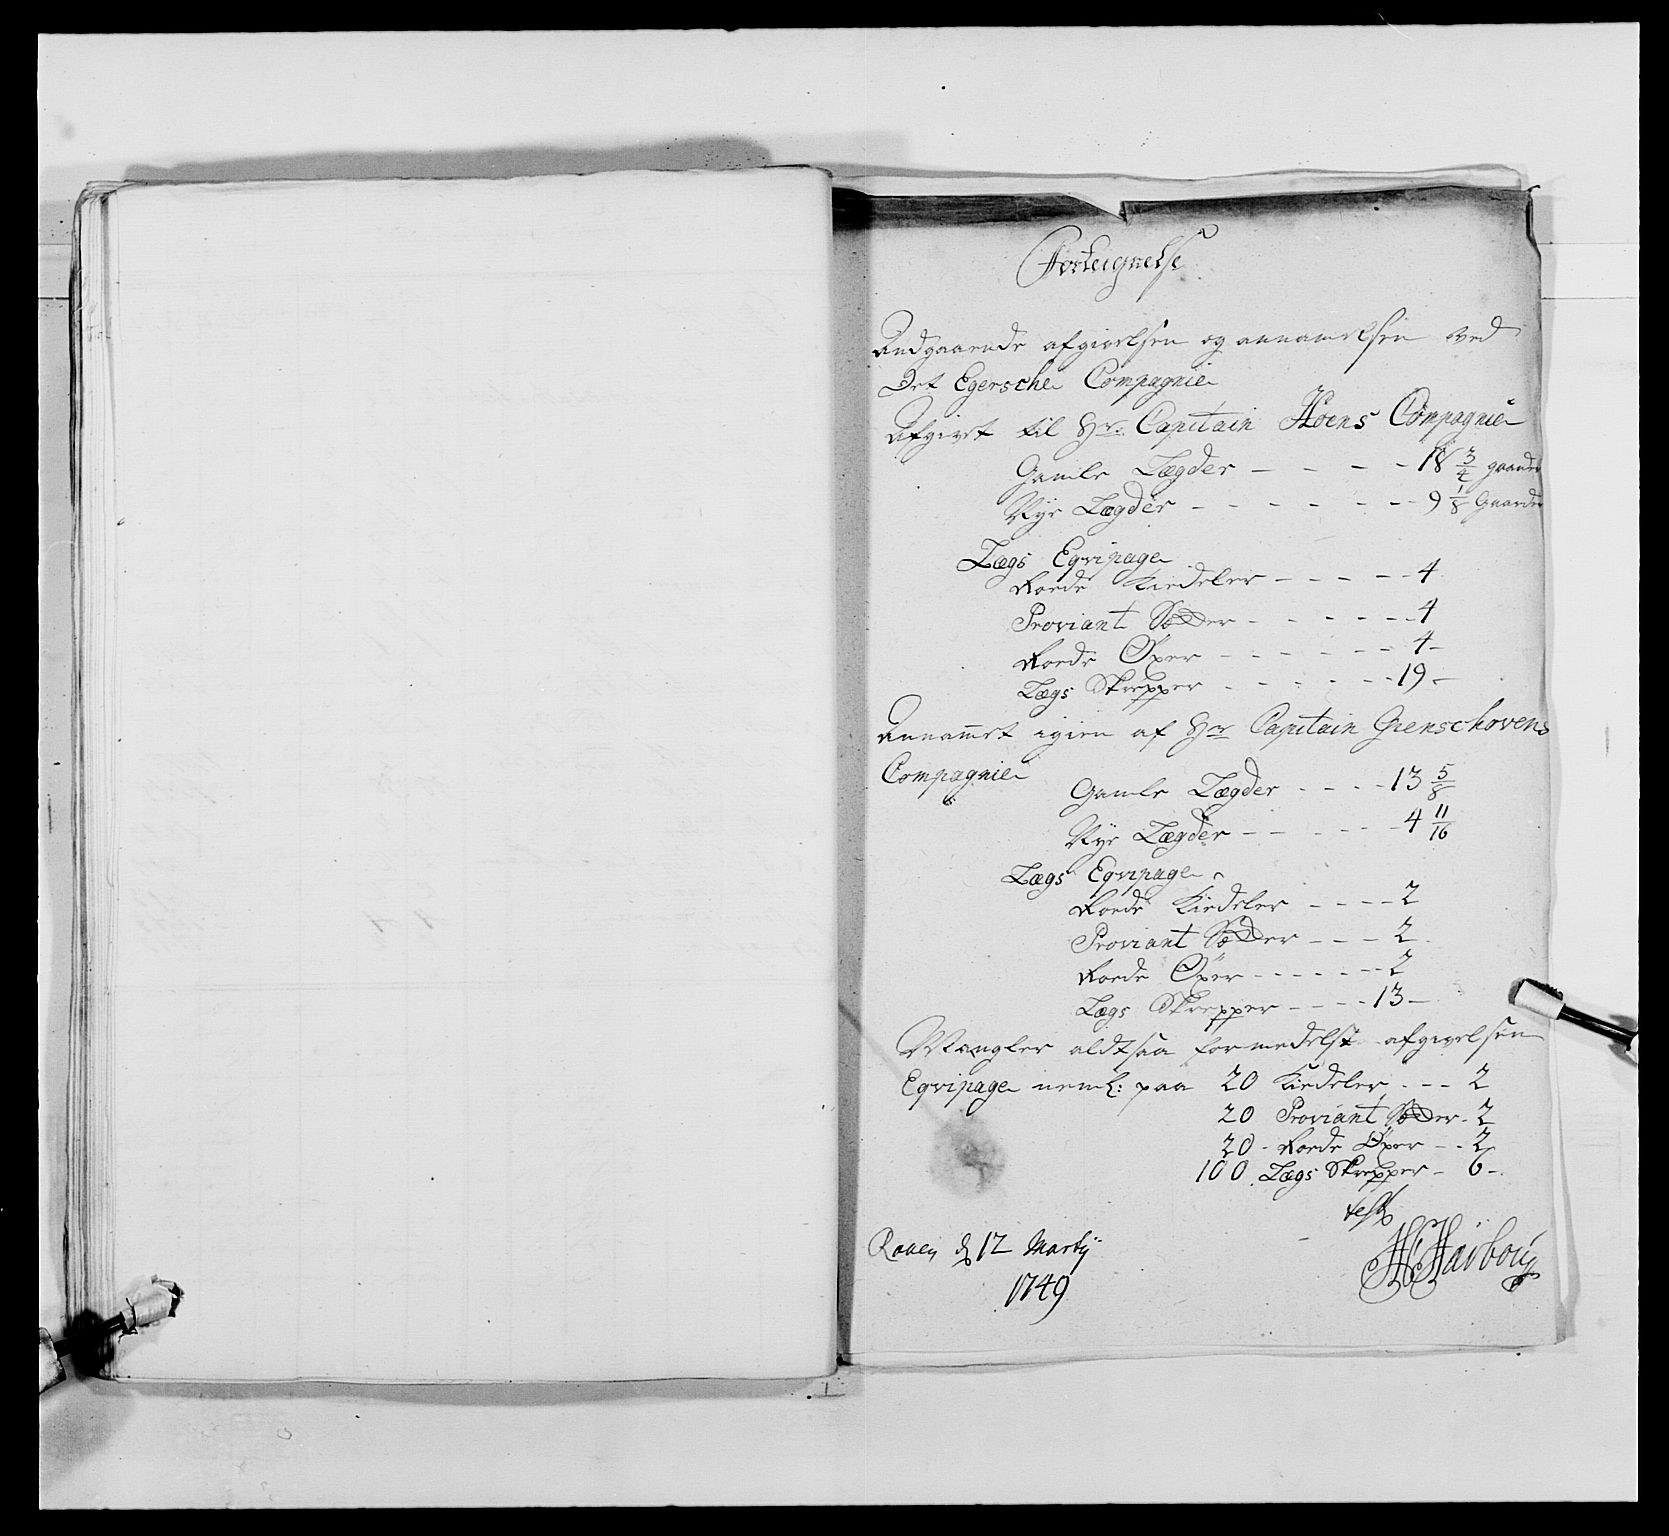 Forteignelse
Andgaaende afgivelsen og annamelsen ved
Det Egersche Compagnie
Afgivet til Hr: Capitain Hoens Compagnie
Gamle Lægder - - - - 18 3/4 gaarder
Nye Lægder - - - - - - 9 1/8 Gaarder
Lægs Eqvipage
Roede Kiedeler - - - - - 4
Proviant Sædder - - - - - - 4
Roede Øxer - - - - - - 4 -
Lægs Skrepper - - - - - - 19 -
Annammet igien af Hr Capitain Grenschovens
Compagnie
Gamle Lægder - - - - 13 5/8
Nye Lægder - - - - - - 4 11/16
Lægs Eqvipage
Roede Kiedeler - - - - 2
Proviant Sædder - - - 2
Roede Øxer - - - - - - 2
Lægs Skrepper - - - - 13 -
Mangler aldtsaa formedelst afgivelsen
Eqvipage neml: paa 20 Kiedeler - - - 2
20 Proviant Sædder - 2
20 - Roede Øxer - - 2
100 Lægs Skrepper - 6 -
d 12 Marty
1749